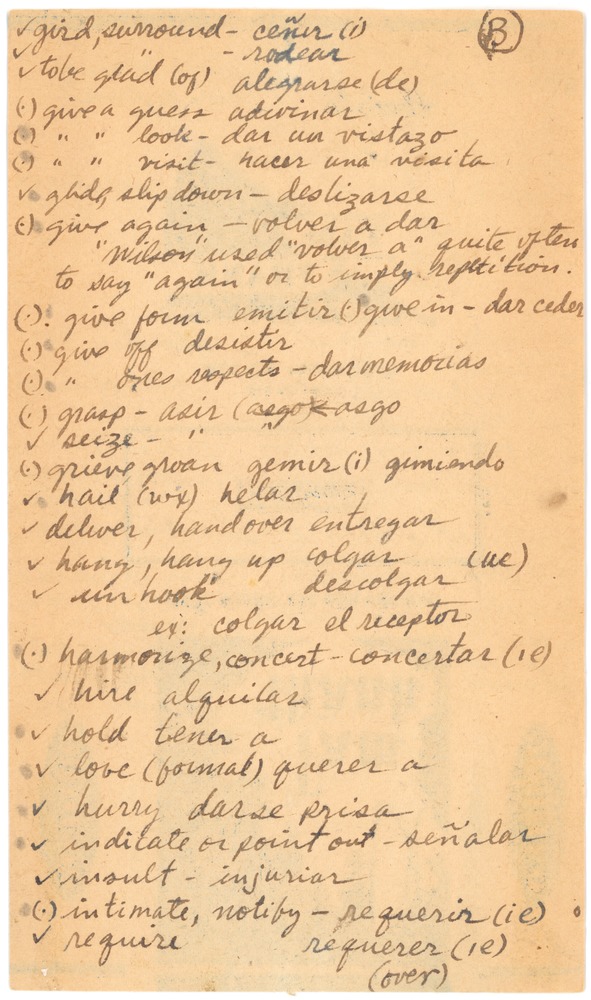 B
✓ gird, surround - ceñir (i)
✓ " - rodear
✓ to be glad (of) alegrarse (de)
(·) give a guess adivinar
(·) " " look - dar un vistazo
(·) " " visit - hacer una visita
✓ glide, slip down - deslizarse
(·) give again - volver a dar
"Wilson" used "volver a" quite often
to say "again" or to imply reptition.
(·). give form emitir (·) give in - dar ceder
(·) give off desistir
(·) " ones respects - dar memorias
(·) grasp - asir (asgo) asgo
✓ seize - " "
(·) grieve groan gemir (i) gimiendo
✓ hail (wx) helar
✓ deliver, hand over entregar
✓ hang, hang up colgar (ue)
✓ unhook descolgar
ex: colgar el receptor
(·) harmonize, concert - concertar (ie)
✓ hire alquilar
✓ hold tener a
✓ love (formal) querer a
✓ hurry darse prisa
✓ indicate or point out - señalar
✓ insult - injuriar
(·) intimate, notify - requerir (ie)
✓ require requerer (ie)
(over)